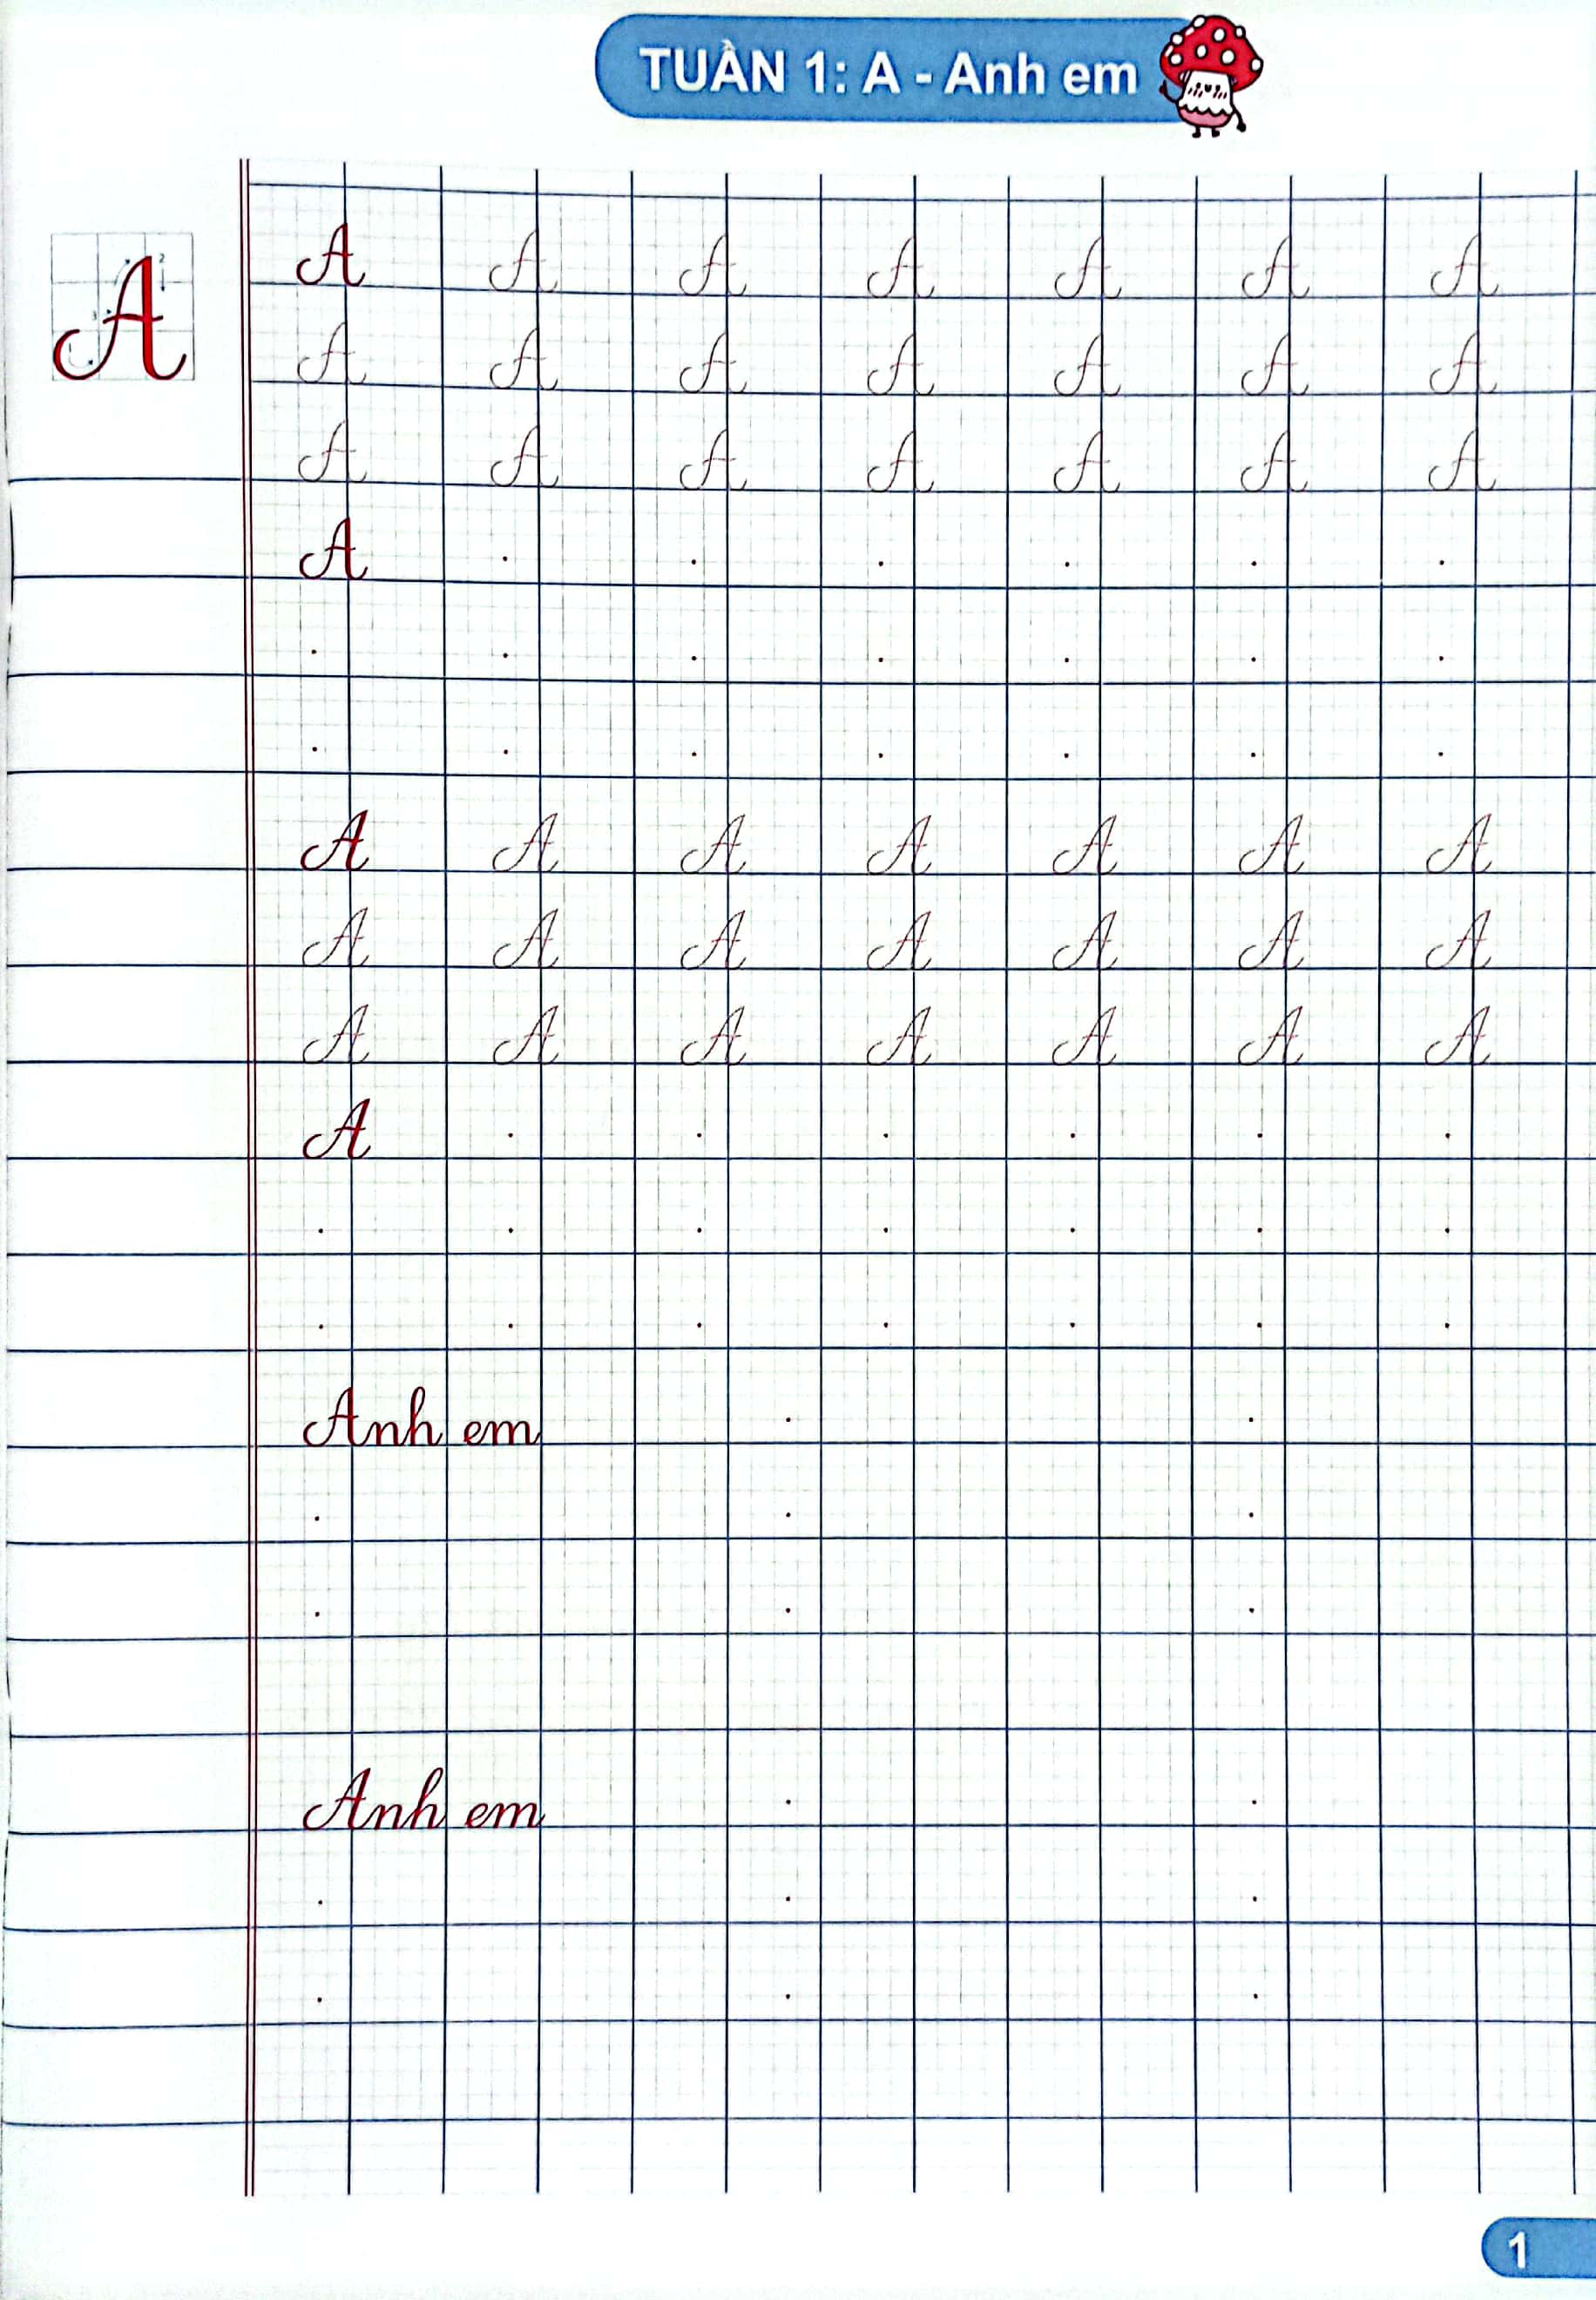 TUẦN 1: A - Anh em
A 2 3
A A A A A A A
A A A A A A A
A A A A A A A
A . . . . . .
. . . . . . .
. . . . . . .
A A A A A A A
A A A A A A A
A A A A A A A
A . . . . . .
. . . . . . .
. . . . . . .
Anh em . .
. . .
. . .
Anh em . .
. . .
. . .
1